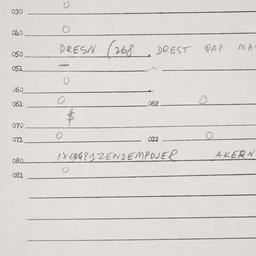 030 0
040 0
050 DRESN (268 DREST QAP MA
052 —
0
060
061 0 062 0
070 $
071 0 072 0
080 AKERN
081 0